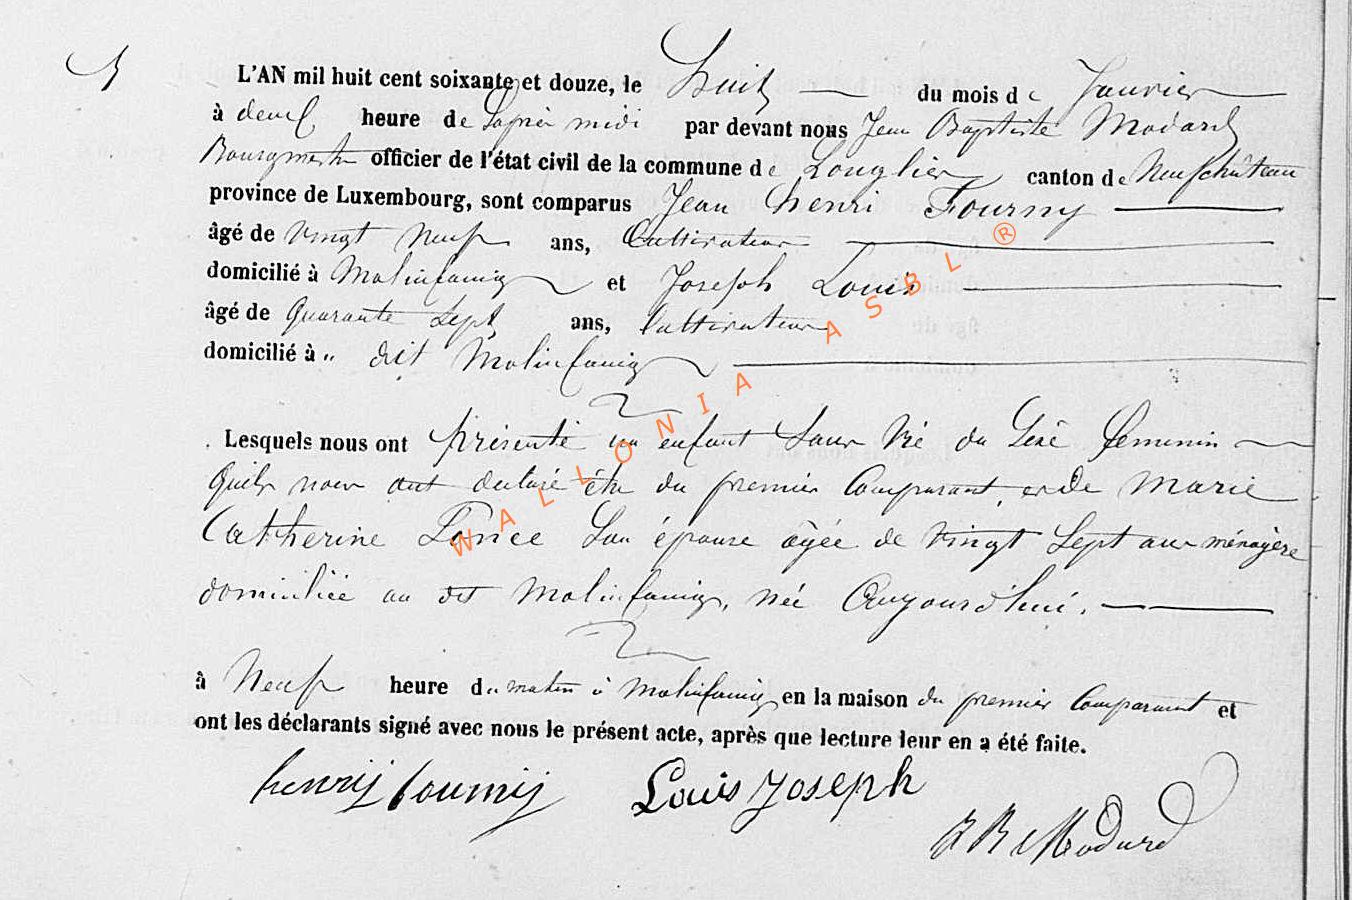 L'AN mil huit cent soixante et douze, le huit du mois de Janvier
à deux heure de L'après midi par devant nous Jean Baptiste Modard
Bourgmestre officier de l'état civil de la commune de Longlier canton de Neufchâteau
province de Luxembourg, sont comparus Jean henri Fourny
âgé de vingt Neuf ans, Cultivateur
domicilié à Molinfaing et Joseph Louis
âgé de Quarante Sept ans, Cultivateur
domicilié à " dit Molinfaing
Lesquels nous ont présenté un enfant Sans Vie du Sexe feminin
Quils nous ont declaré être du premier Comparant et de Marie
Catherine Son épouse agée de Vingt Sept ans ménagère
domiciliée au dit Molinfaing, née Aujourdhui.
à Neuf heure du matin à Molinfaing en la maison du premier Comparant et
ont les déclarants signé avec nous le présent acte, après que lecture leur en a été faite.
henrij fournij Louis Joseph
J B Modard
WALLONIA ASBL ®